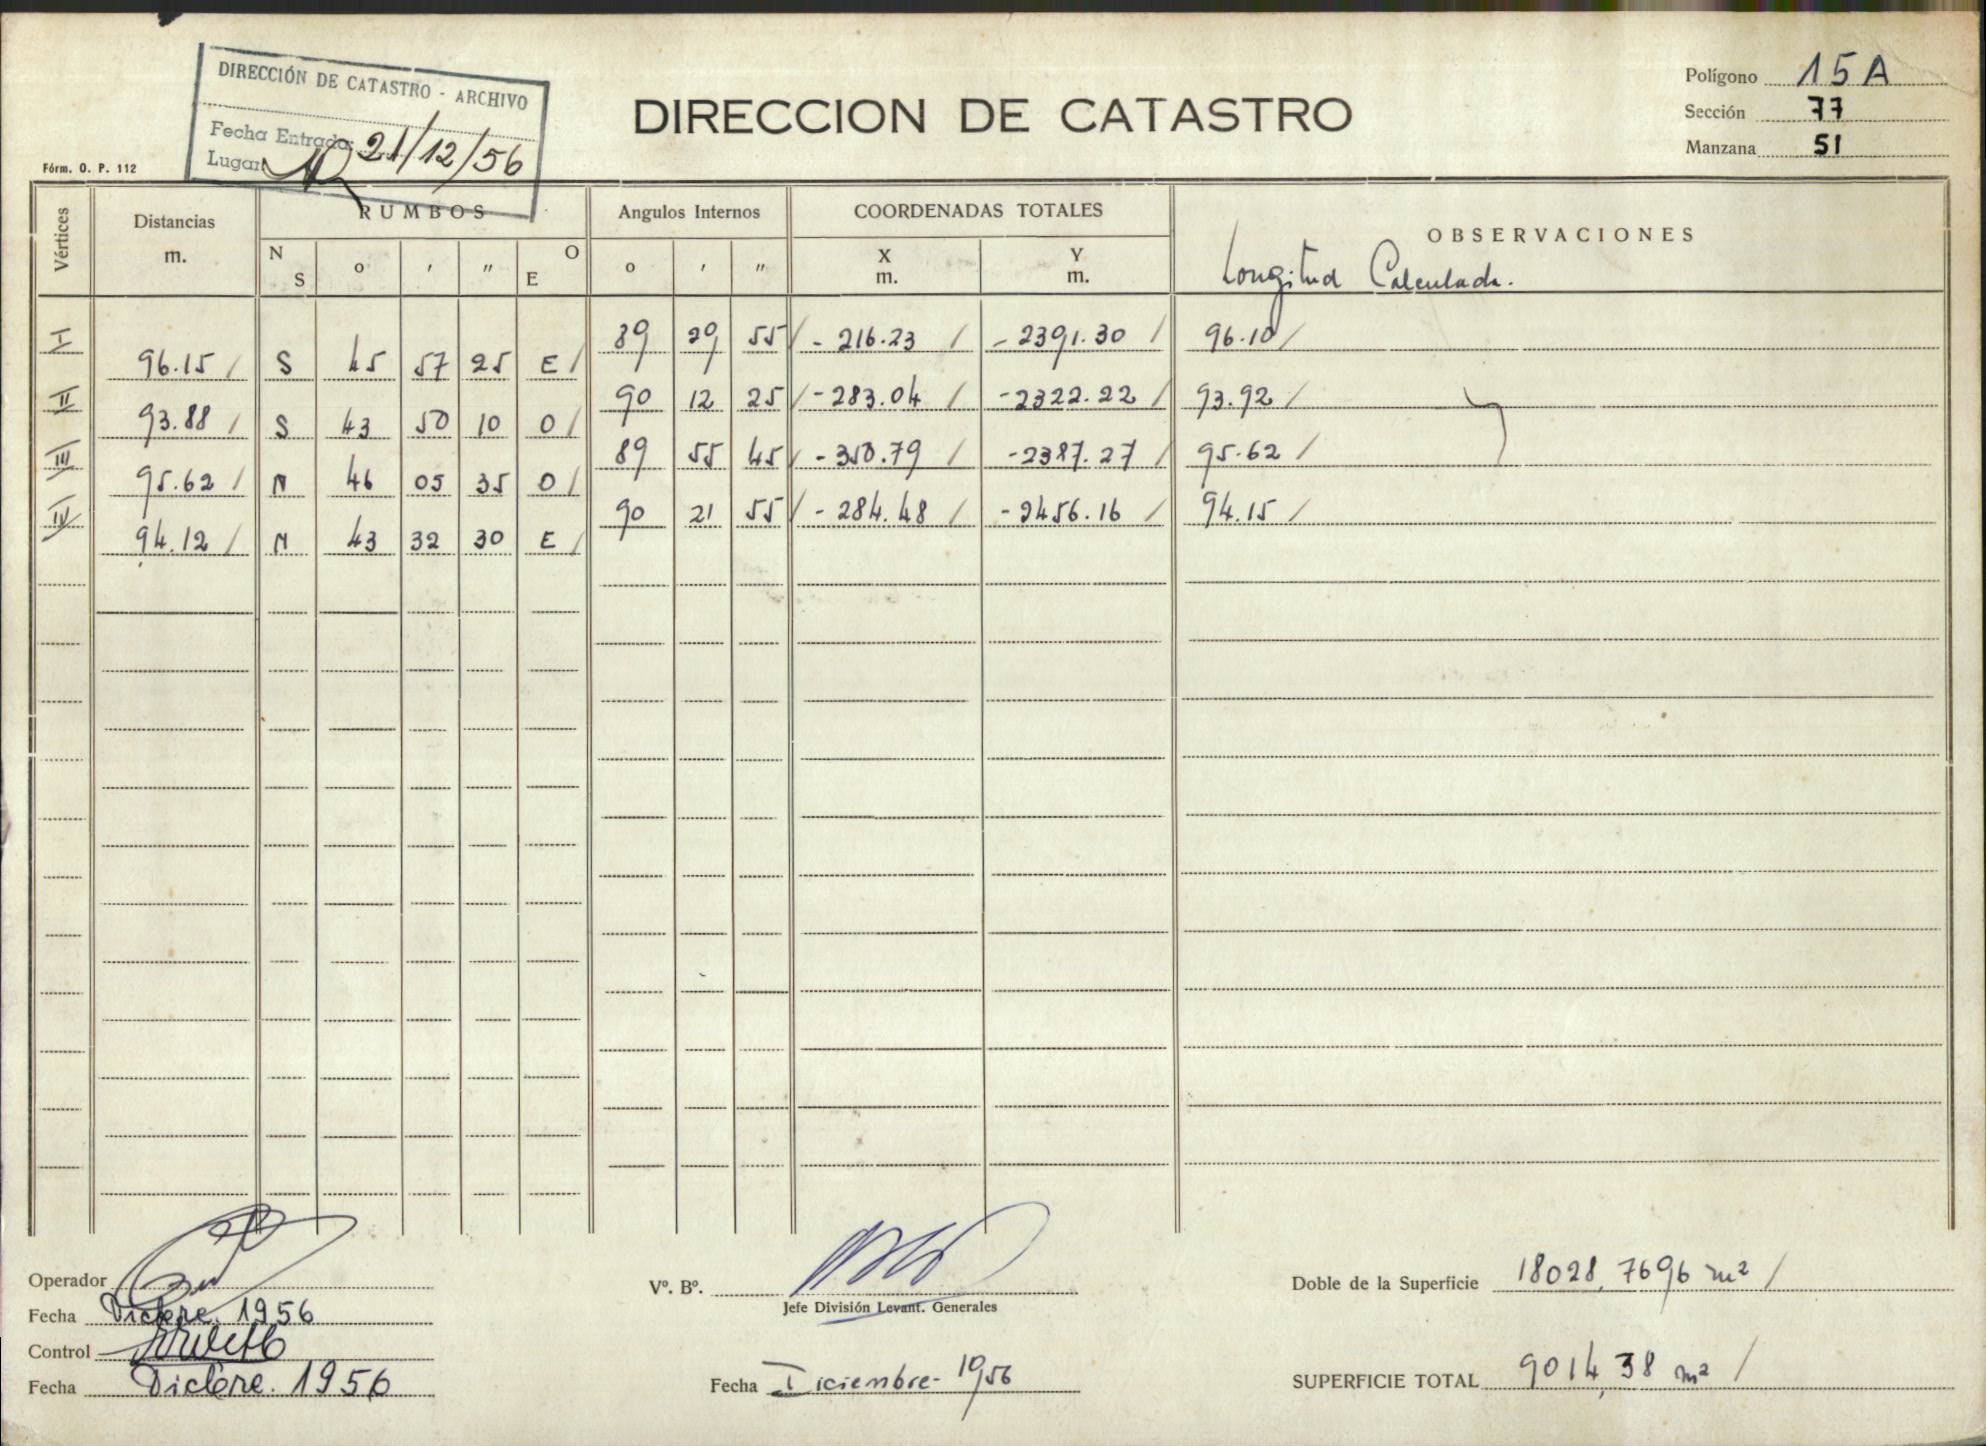 DIRECCIÓN DE CATASTRO - ARCHIVO
Fecha Entrada: 21/12/56
Lugar
Fórm. O. P. 112
DIRECCION DE CATASTRO
Polígono 15A
Sección 77
Manzana 51
Vértices
Distancias m.
RUMBOS
N S o ' " O E
Angulos Internos
o ' "
COORDENADAS TOTALES
X m. Y m.
OBSERVACIONES
Longitud Calculada.
I 89 29 55 / - 216.23 / - 2391.30 / 96.10 /
96.15 / S 45 57 25 E /
II 90 12 25 / - 283.04 / - 2322.22 / 93.92 /
93.88 / S 43 50 10 O /
III 89 55 45 / - 350.79 / - 2387.27 / 95.62 /
95.62 / N 46 05 35 O /
IV 90 21 55 / - 284.48 / - 2456.16 / 94.15 /
94.12 / N 43 32 30 E /
Operador
Fecha Dicbre. 1956
Control
Fecha Dicbre. 1956
Vº. Bº.
Jefe División Levant. Generales
Fecha Diciembre - 1956
Doble de la Superficie 18028,7696 m² /
SUPERFICIE TOTAL 9014,38 m² /